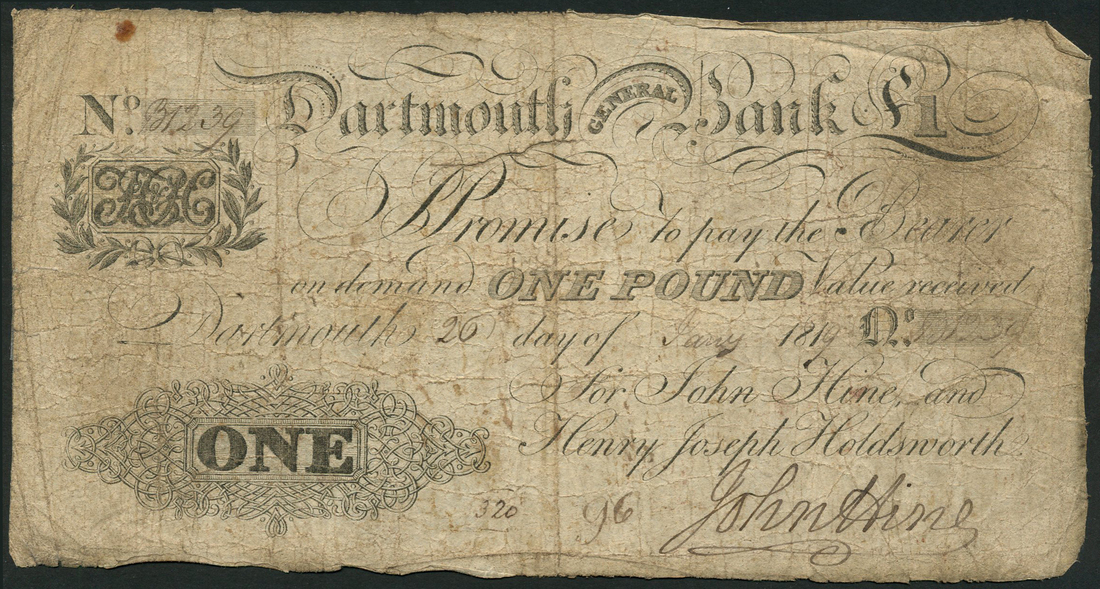 Nº. B1239 Dartmouth GENERAL Bank £1
I Promise to pay the Bearer
on demand ONE POUND Value received
Dartmouth 26 day of Jany 1819 Nº. B1239
For John Hine, and
Henry Joseph Holdsworth
ONE
320 96 John Hine